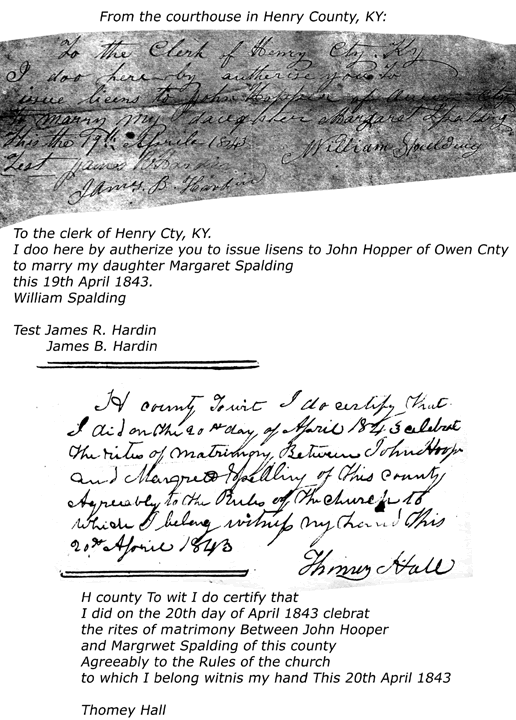 From the courthouse in Henry County, KY:
To the Clerk of Henry Cty. Ky
I doo here by autherise you to
issue licens to John Hopper of
to marry my daughter Margaret Spalding
this the 19th Aprile 1843
William Spalding
Test James
James B. Hardin
To the clerk of Henry Cty, KY.
I doo here by autherize you to issue lisens to John Hopper of Owen Cnty
to marry my daughter Margaret Spalding
this 19th April 1843.
William Spalding
Test James R. Hardin
James B. Hardin
H county Towit I do certify that
I did on the 20th day of April 1843 celebrat
the rites of matrimony Between John Hoop
and Margret Spalding of this county
Agreeably to the Rules of the church to
which I belong witniss my hand This
20th April 1843
Thomey Hall
H county To wit I do certify that
I did on the 20th day of April 1843 clebrat
the rites of matrimony Between John Hooper
and Margrwet Spalding of this county
Agreeably to the Rules of the church
to which I belong witnis my hand This 20th April 1843
Thomey Hall